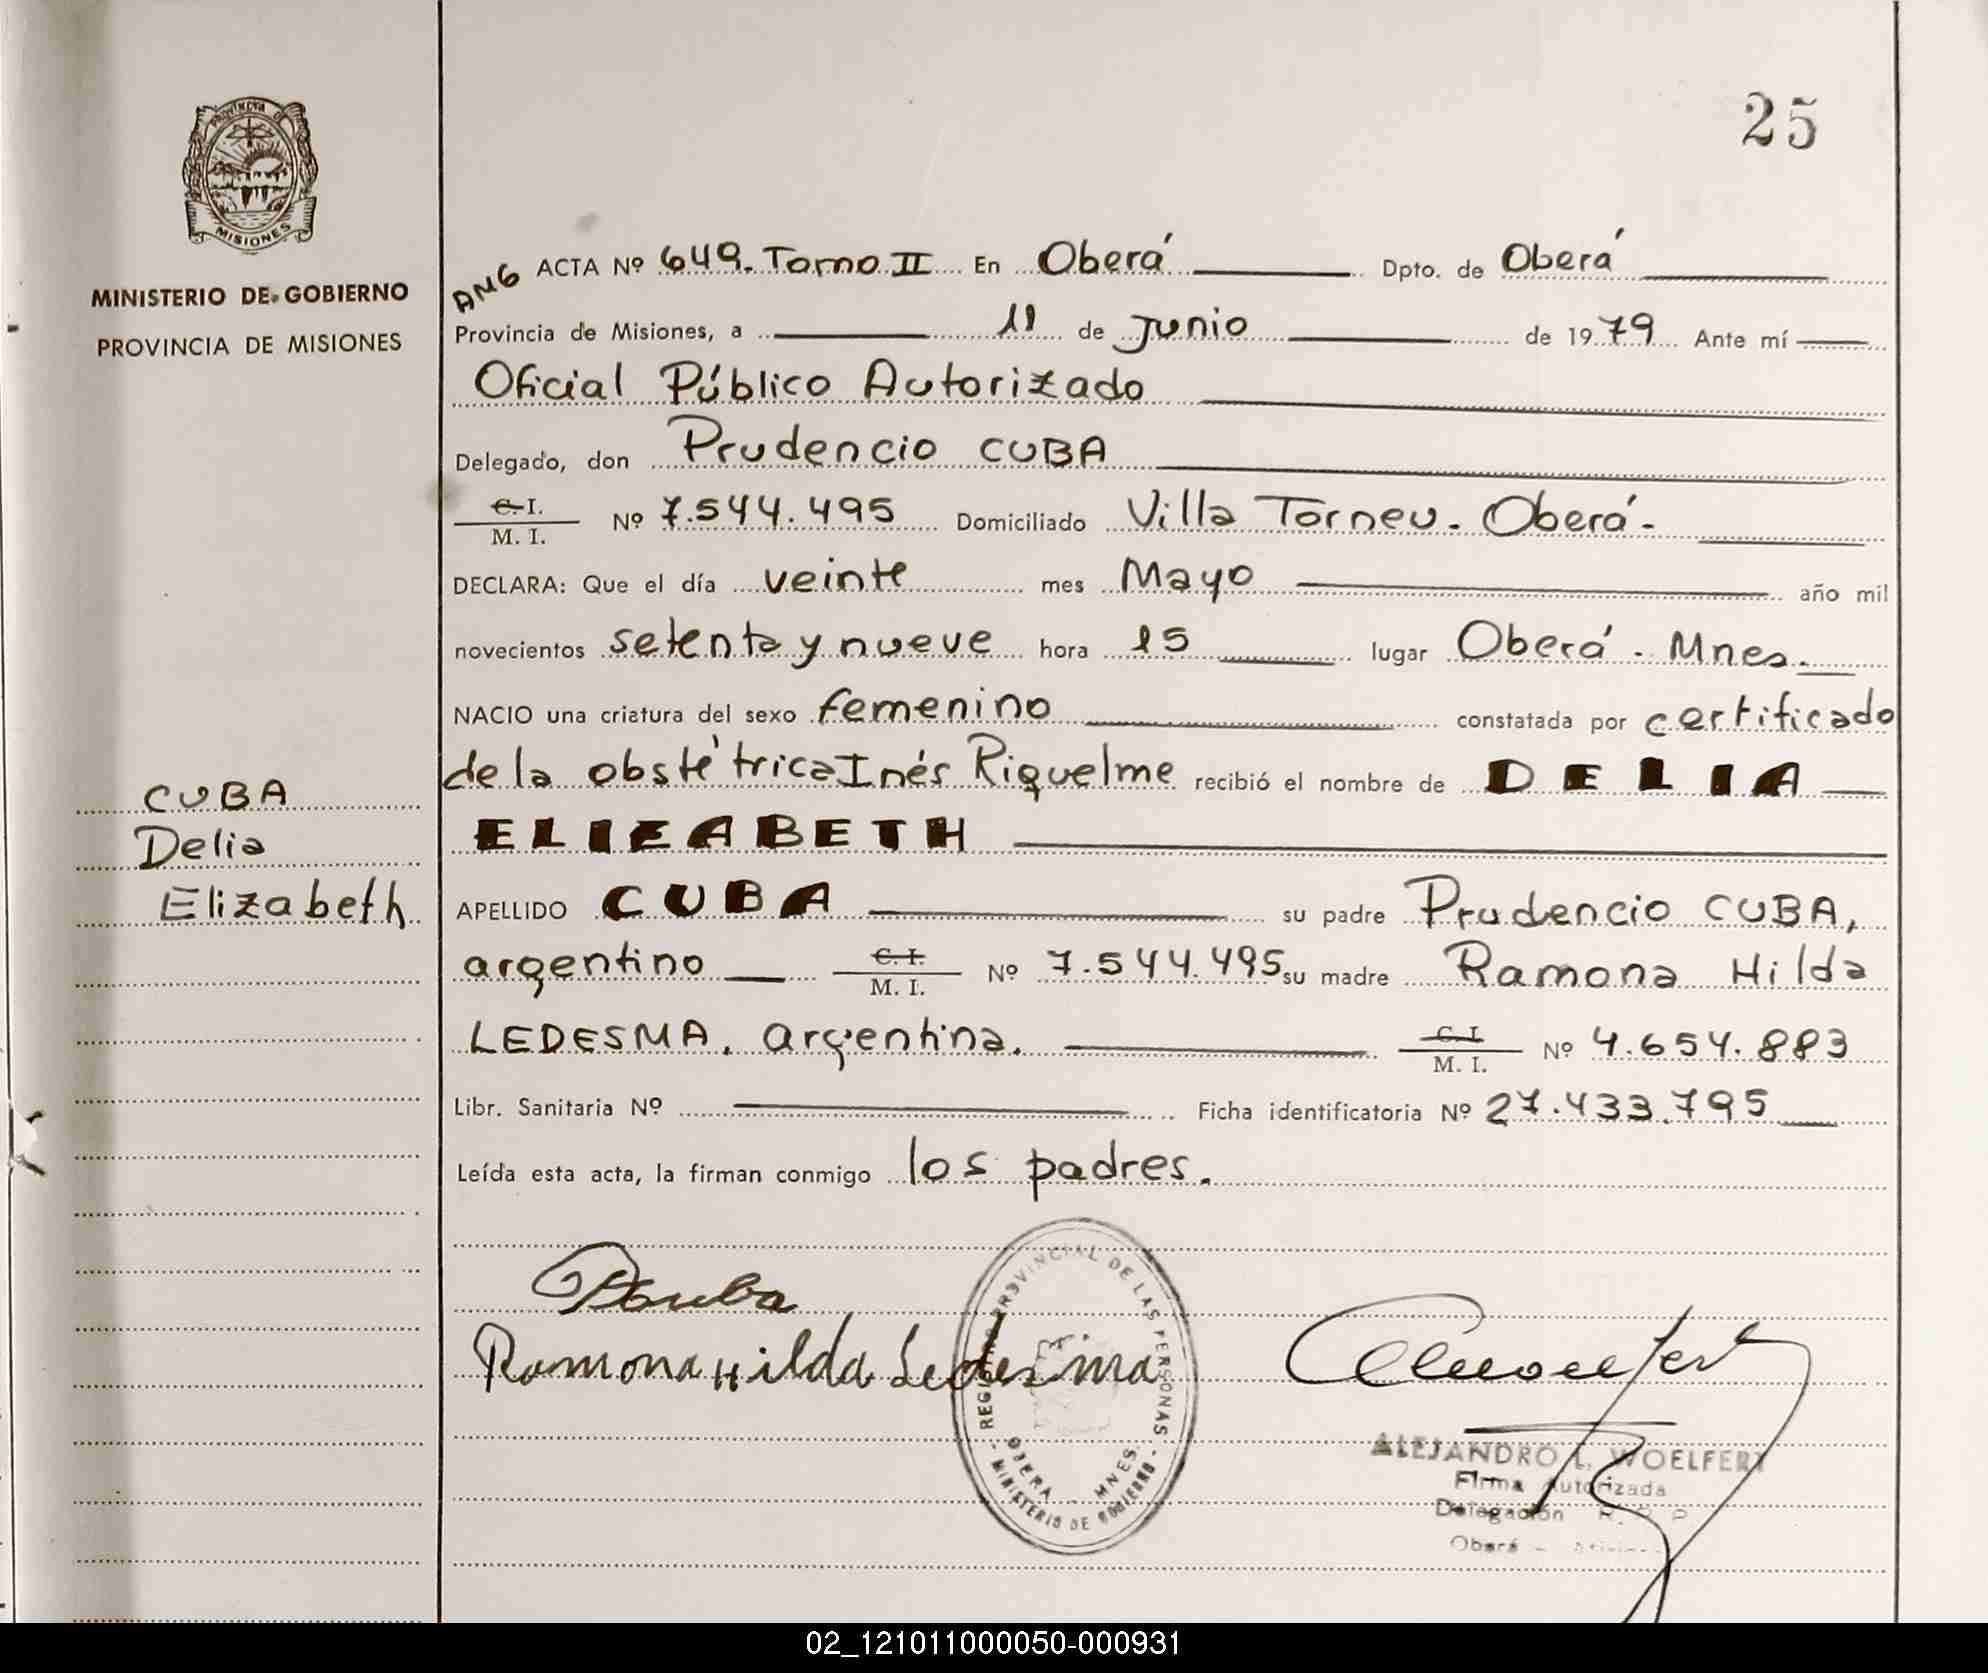 25
PROVINCIA DE
MISIONES
MINISTERIO DE GOBIERNO
PROVINCIA DE MISIONES
AMG
ACTA Nº 649. Tomo II En Oberá Dpto. de Oberá
Provincia de Misiones, a 11 de Junio de 1979 Ante mí
Oficial Público Autorizado
Delegado, don Prudencio CUBA
C. I.
M. I. Nº 7.544.495 Domiciliado Villa Torneu. Oberá.
DECLARA: Que el día veinte mes Mayo año mil
novecientos setenta y nueve hora 15 lugar Oberá. Mnes.
NACIO una criatura del sexo femenino constatada por certificado
de la obstétrica Inés Riquelme recibió el nombre de DELIA
ELIZABETH
CUBA
Delia
Elizabeth
APELLIDO CUBA su padre Prudencio CUBA,
argentino C. I.
M. I. Nº 7.544.495 su madre Ramona Hilda
LEDESMA. argentina. C. I.
M. I. Nº 4.654.883
Libr. Sanitaria Nº Ficha identificatoria Nº 27.433.795
Leída esta acta, la firman conmigo los padres.
Ramona Hilda Ledesma
REGISTRO PROVINCIAL DE LAS PERSONAS
OBERA - MNES
MINISTERIO DE GOBIERNO
ALEJANDRO L. WOELFERT
Firma Autorizada
Delegación R. P. P.
Oberá -
02_121011000050-000931